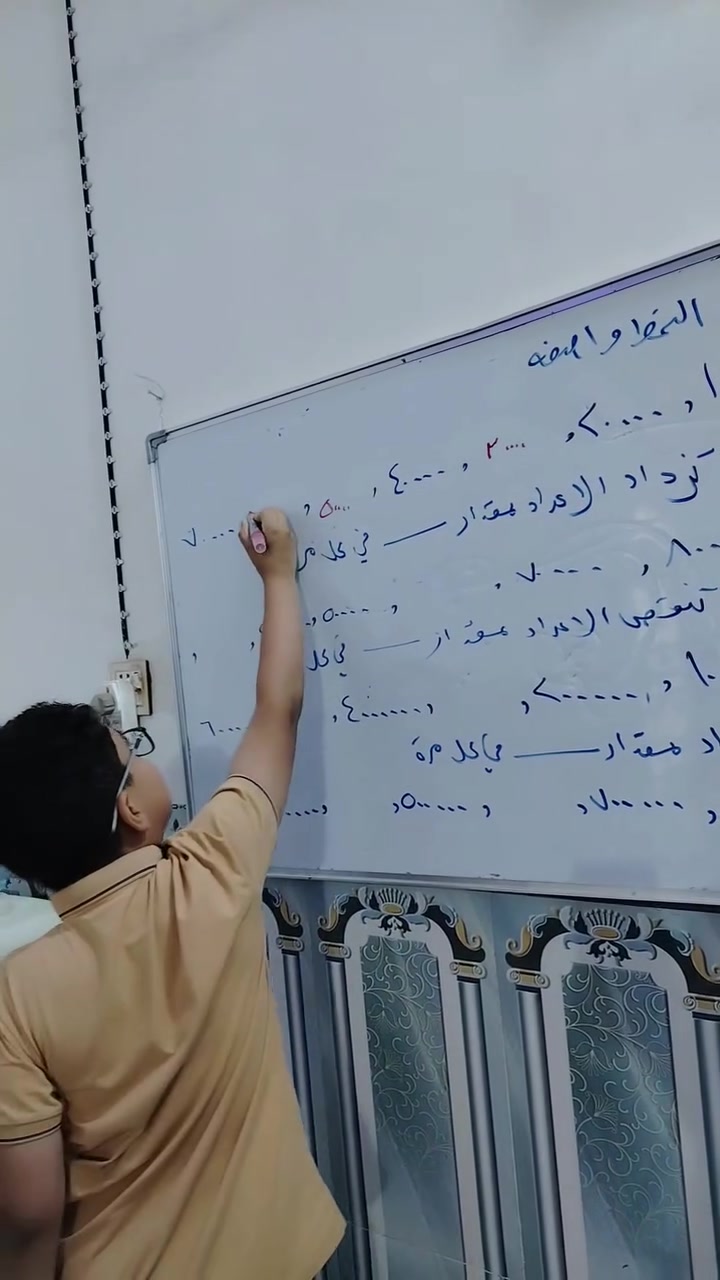 النمط واصفه
١ , ٢٠٠٠٠ , ٣٠٠٠٠ , ٤٠٠٠٠ , ٥٠٠٠٠ , ٧٠٠٠٠
تزداد الاعداد بمقدار ـــــ في كل مرة
٨٠٠ , ٧٠٠٠٠ , , ٥٠٠٠٠ , , ,
تتنقص الاعداد بمقدار ـــــ في كل
١٠ , ٢٠٠٠٠٠٠ , , ٤٠٠٠٠٠٠ , ٦٠٠٠
اد بمقدار ـــــ في كل مرة
, ٧٠٠٠٠٠٠ , , ٥٠٠٠٠٠٠ ,